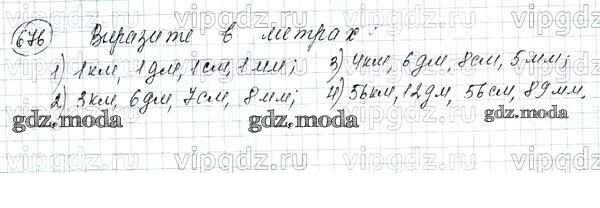 vipgdz.ru vipgdz.ru vipgdz.ru
676 Выразите в метрах:
1) 1км, 1дм, 1см, 1мм; 3) 4км, 6дм, 8см, 5мм;
2) 3км, 6дм, 7см, 8мм; 4) 56км, 12дм, 56см, 89мм,
gdz.moda gdz.moda gdz.moda
vipgdz.ru vipgdz.ru vipgdz.ru